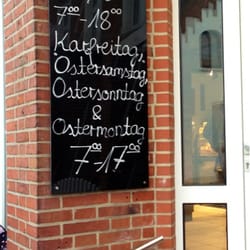 7⁰⁰ - 18⁰⁰
Karfreitag,
Ostersamstag,
Ostersonntag
&
Ostermontag
7⁰⁰-17⁰⁰